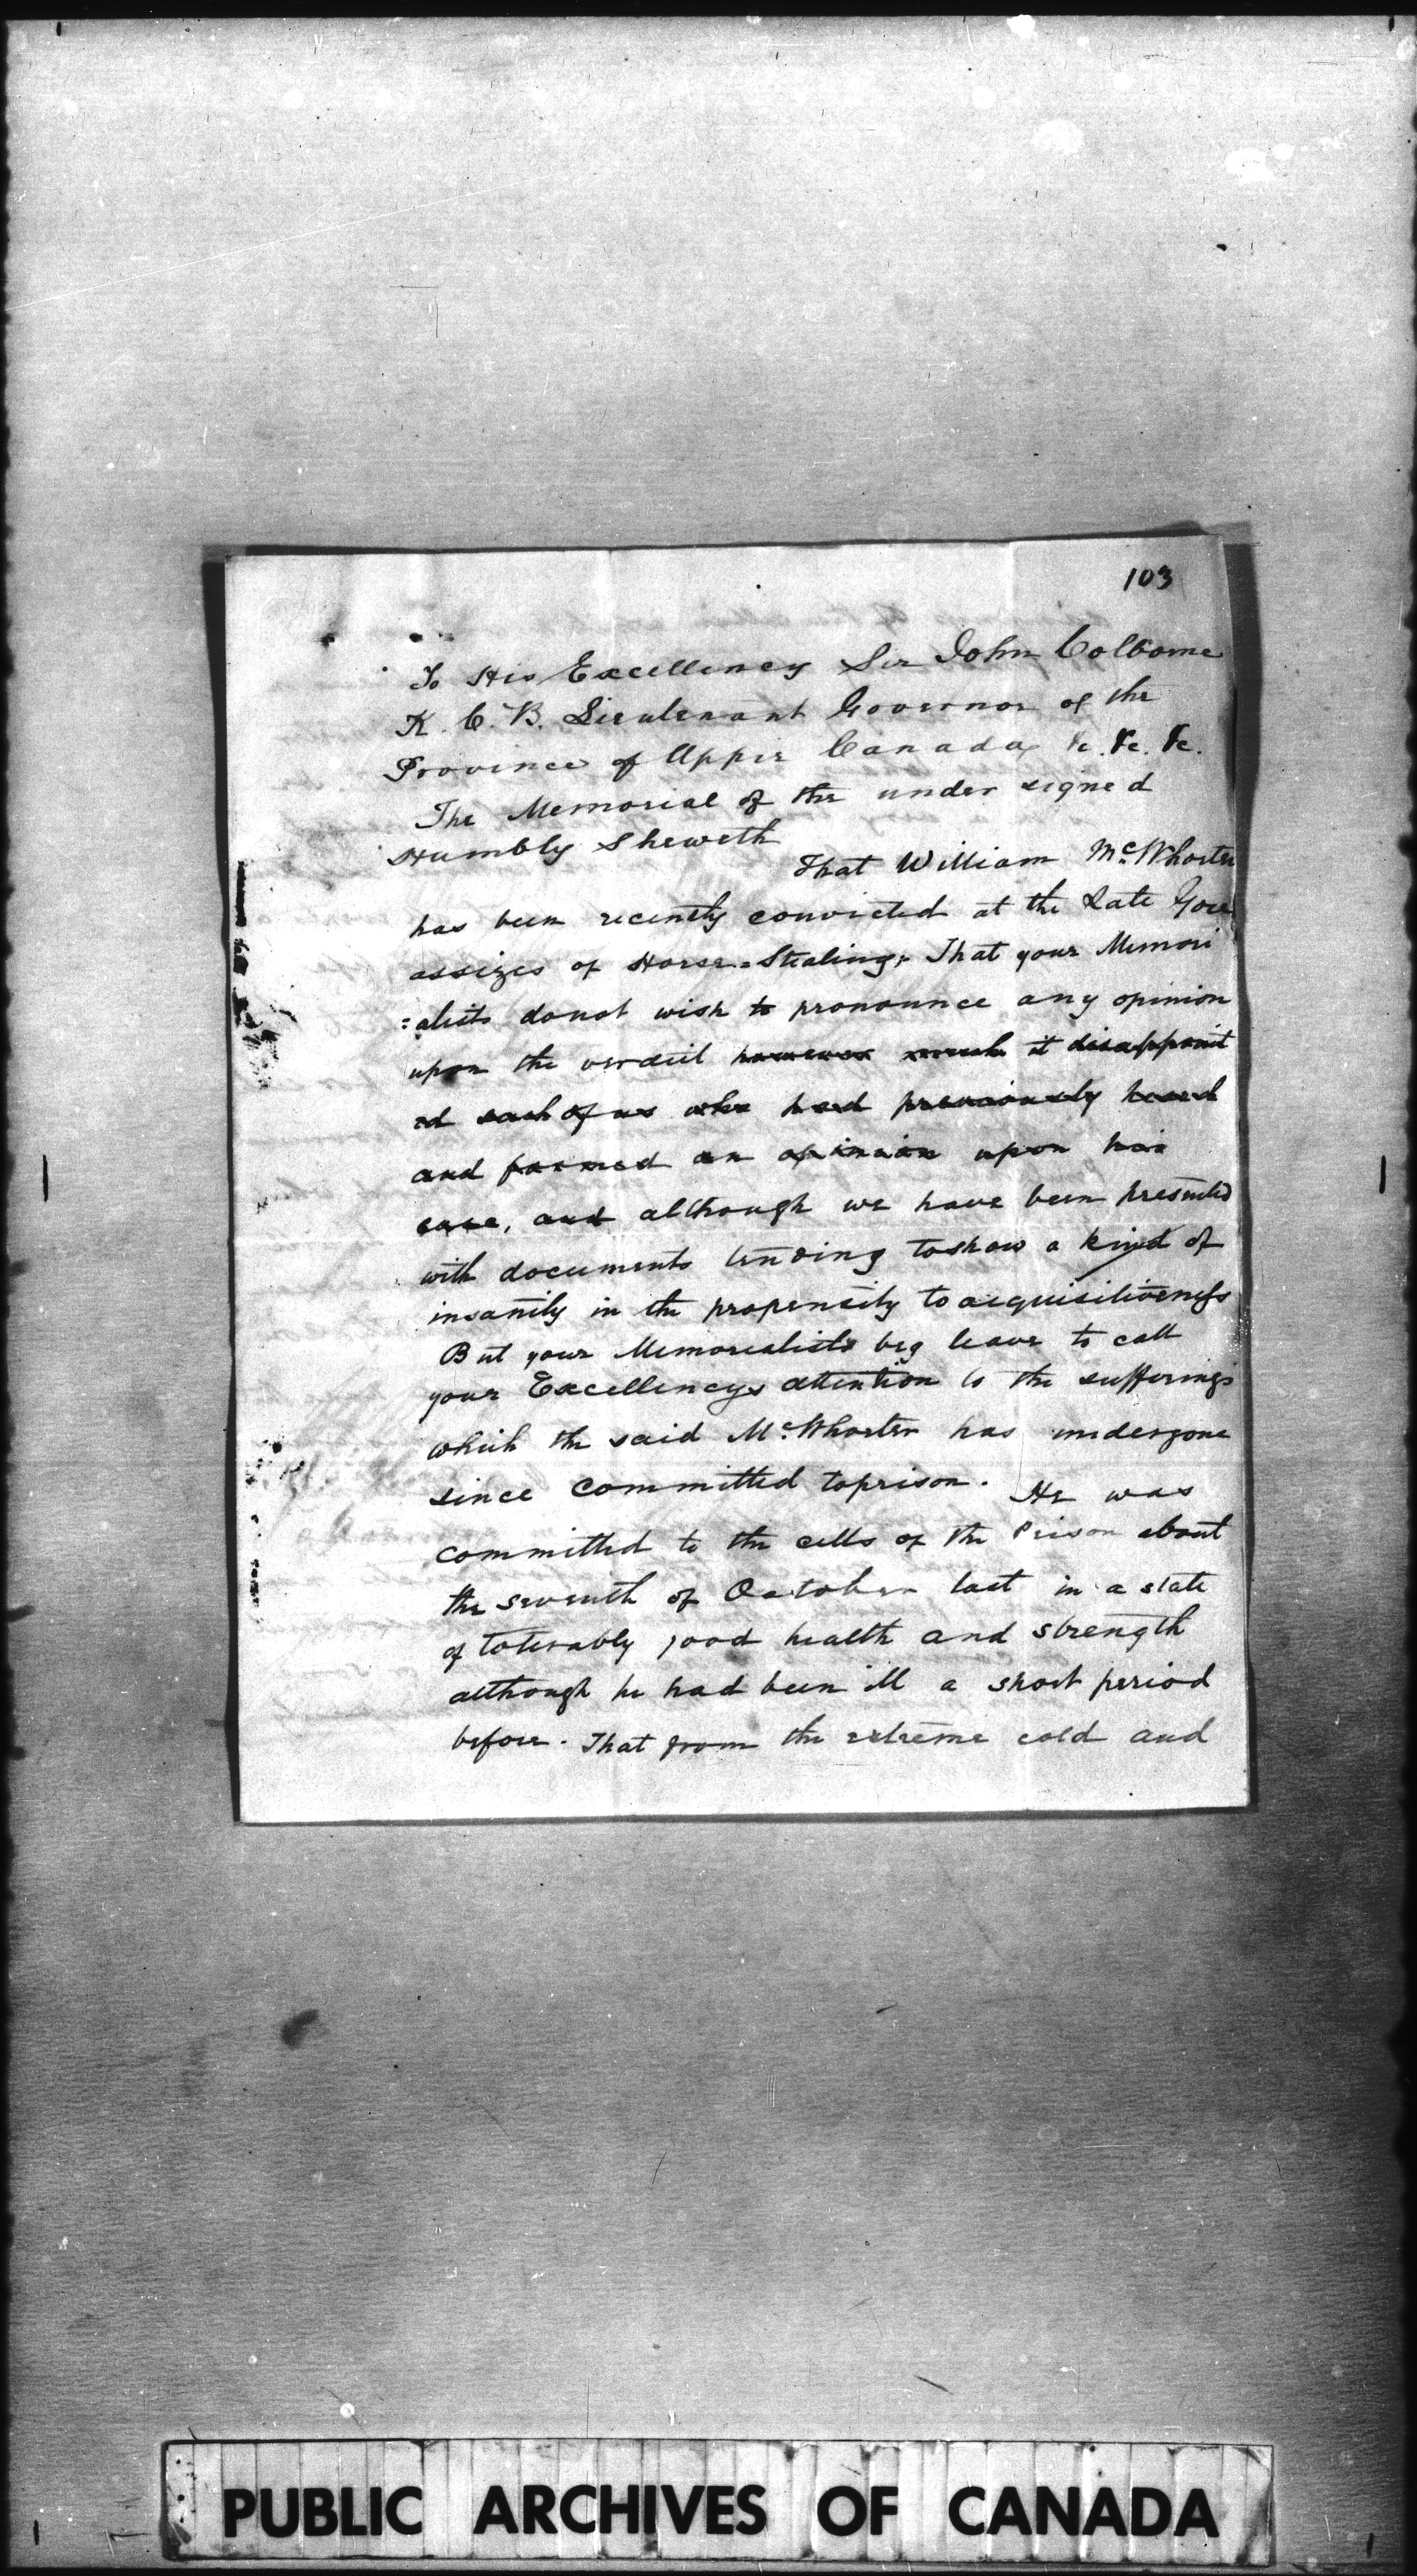 103
To His Excellency Sir John Colborne
K. C. B. Lieutenant Governor of the
Province of Upper Canada &c. &c. &c.
The Memorial of the under signed
Humbly Sheweth
That William McWhorter
has been recently convicted at the Late Gore
assizes of Horse=Stealing, That your Memori
=alists donot wish to pronounce any opinion
upon the verdict however much it disappoint
ed such of us who had previously heard
and formed an opinion upon his
case, and although we have been presented
with documents tending toshow a kind of
insanity in the propensity to acquisitiveness
But your Memorialists beg leave to call
your Excellencys attention to the sufferings
which the said McWhorter has undergone
since committed toprison. He was
committed to the cells of the Prison about
the seventh of October last in a state
of tolerably good health and strength
although he had been ill a short period
before. That from the extreme cold and
PUBLIC ARCHIVES OF CANADA